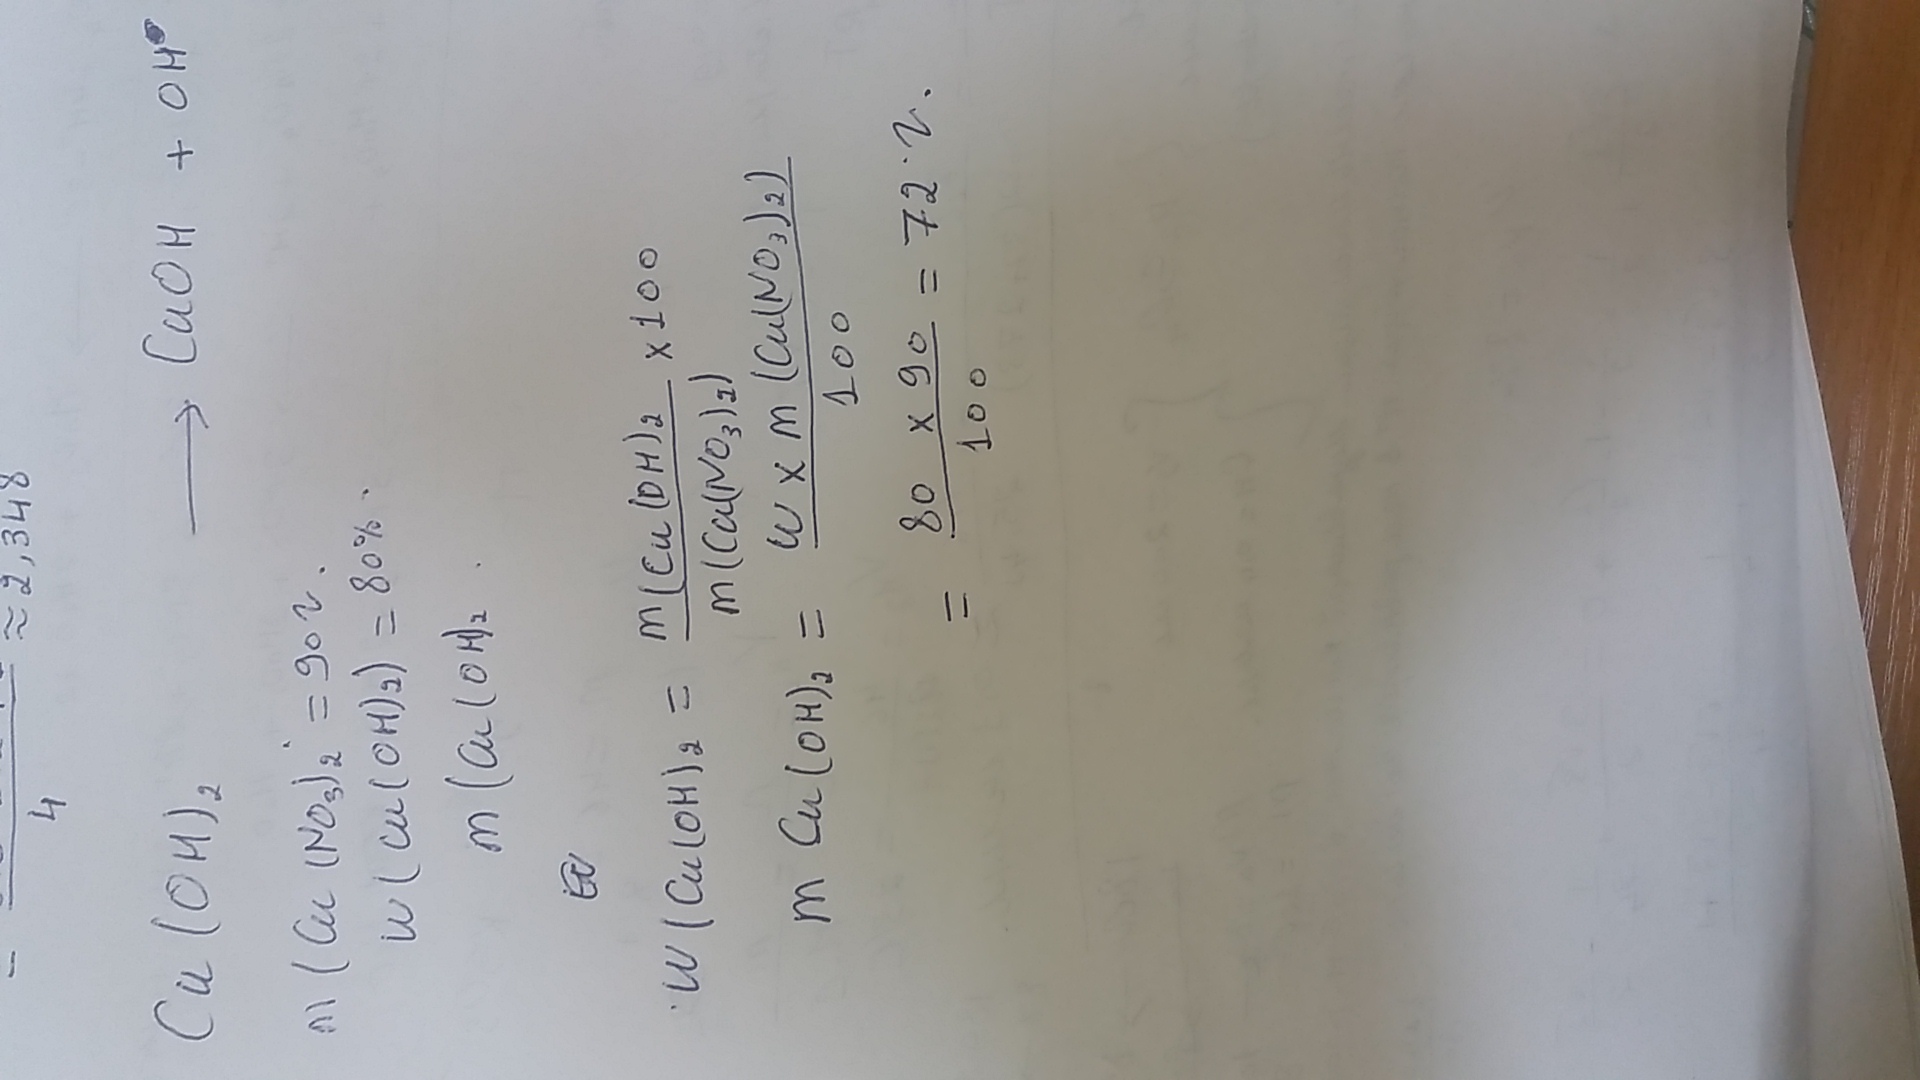 ≈ 2,348
4
Cu(OH)2 → CuOH + OH
m(Cu(NO3)2 = 90 г.
w(Cu(OH)2) = 80%.
m(Cu(OH)2.
w(Cu(OH)2 = m(Cu(OH)2 / m(Cu(NO3)2) x 100
m Cu(OH)2 = w x m(Cu(NO3)2) / 100
= 80 x 90 / 100 = 72 г.